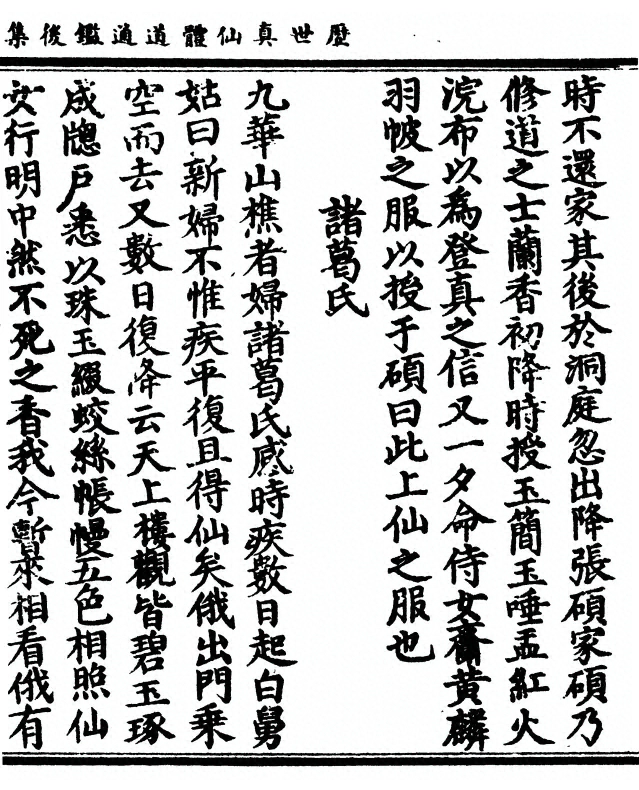 歷世真仙體道通鑑後集
時不還家其後於洞庭忽出降張碩家碩乃
修道之士蘭香初降時授玉簡玉唾盂紅火
浣布以為登真之信又一夕命侍女齎黃麟
羽帔之服以授于碩曰此上仙之服也
諸葛氏
九華山樵者婦諸葛氏感時疾數日起白舅
姑曰新婦不惟疾平復且得仙矣俄出門乘
空而去又數日復降云天上樓觀皆碧玉琢
成牕戶悉以珠玉綴蛟絲帳幔五色相照仙
女行明中然不死之香我今暫來相看俄有